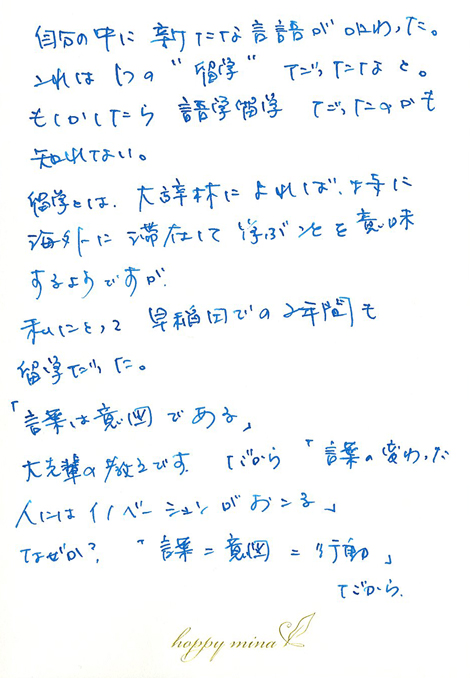 自分の中に 新たな言語が加わった。
これは1つの"留学"だったなと。
もしかしたら 語学留学 だったのかも
知れない。
留学とは、大辞林によれば、特に
海外に滞在して学ぶことを意味
するようですが、
私にとって 早稲田での2年間も
留学だった。
「言葉は意図である」
大先輩の教えです。だから「言葉の変わった
人にはイノベーションがおこる」
なぜか?「言葉=意図=行動」
だから。
happy mina